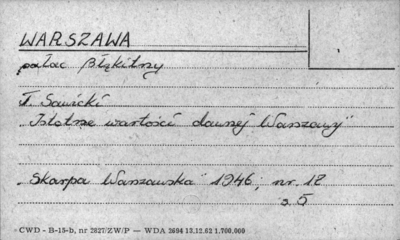 WARSZAWA
pałac Błękitny
T. Sawicki
"Istotne wartości dawnej Warszawy"
"Skarpa Warszawska" 1946, nr. 12
s. 5
CWD - B-15-b, nr 2827/ZW/P — WDA 2694 13.12.62 1.700.000